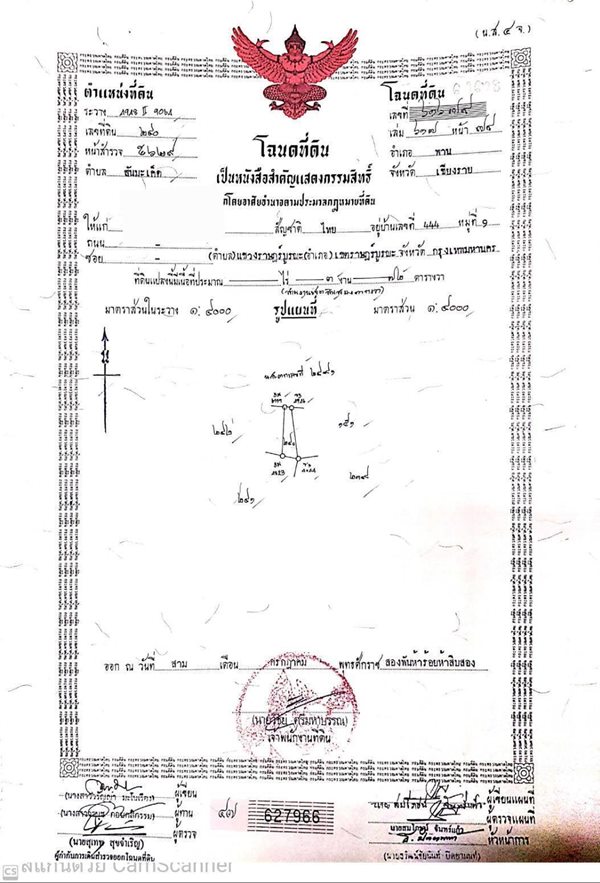 (น.ส. ๔ จ.)
ตำแหน่งที่ดิน
ระวาง
เลขที่ดิน ๒๔๐
หน้าสำรวจ
ตำบล สันมะเค็ด
โฉนดที่ดิน
เลขที่
เล่ม ๖๑๗ หน้า ๗๙
อำเภอ พาน
จังหวัด เชียงราย
โฉนดที่ดิน
เป็นหนังสือสำคัญแสดงกรรมสิทธิ์
ออกโดยอาศัยอำนาจตามประมวลกฎหมายที่ดิน
ให้แก่ สัญชาติ ไทย อยู่บ้านเลขที่ 444 หมู่ที่ ๑
ถนน -
ซอย - (ตำบล) แขวงราษฎร์บูรณะ (อำเภอ) เขตราษฎร์บูรณะ จังหวัด กรุงเทพมหานคร
ที่ดินแปลงนี้มีเนื้อที่ประมาณ - ไร่ ๓ งาน ๗๒ ตารางวา
(สามงานเจ็ดสิบสองตารางวา)
มาตราส่วนในระวาง ๑:๔๐๐๐ รูปแผนที่ มาตราส่วน ๑:๔๐๐๐
น
๒๔๒
๑๕๑
๒๔๐
๒๓๙
๒๔๑
ออก ณ วันที่ สาม เดือน กรกฎาคม พุทธศักราช สองพันห้าร้อยห้าสิบสอง
เจ้าพนักงานที่ดิน
ผู้เขียน
ผู้ทาน
ผู้ตรวจ
(นายสุเทพ สุขจำเริญ)
ผู้กำกับการเดินสำรวจออกโฉนดที่ดิน
๔๗ 627966
ผู้เขียนแผนที่
ผู้ตรวจแผนที่
นายสมโภชน์ จันทร์แก้ว
หัวหน้าการ
CS สแกนด้วย CamScanner